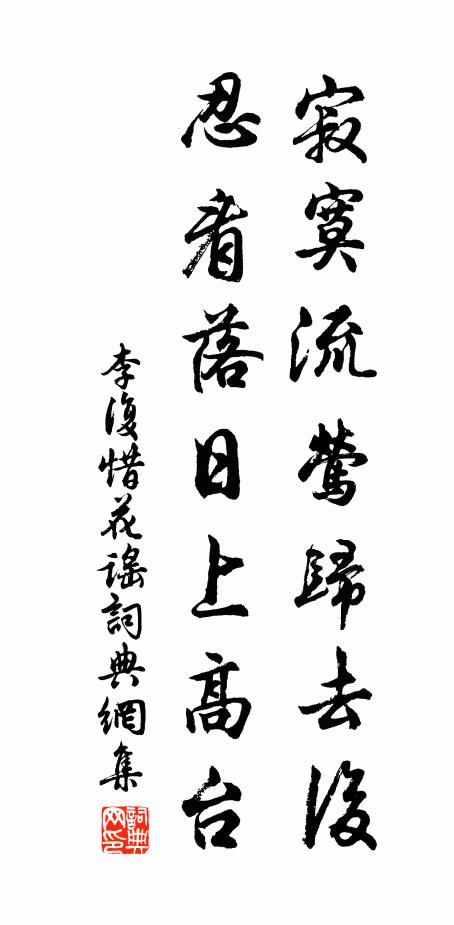 寂寞流莺歸去後
忍看落日上高台
李復惜花謠詞典網集
詞典
网印